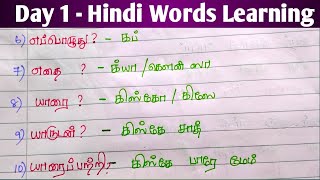 Day 1 - Hindi Words Learning
6) எப்பொழுது ? - கப்
7) எதை ? - க்யா / கௌன் ஸா
8) யாரை ? - கிஸ்கோ / கிஸே
9) யாருடன் ? - கிஸ்கே சாத்
10) யாரைப்பற்றி ? - கிஸ்கே பாரே மேம்